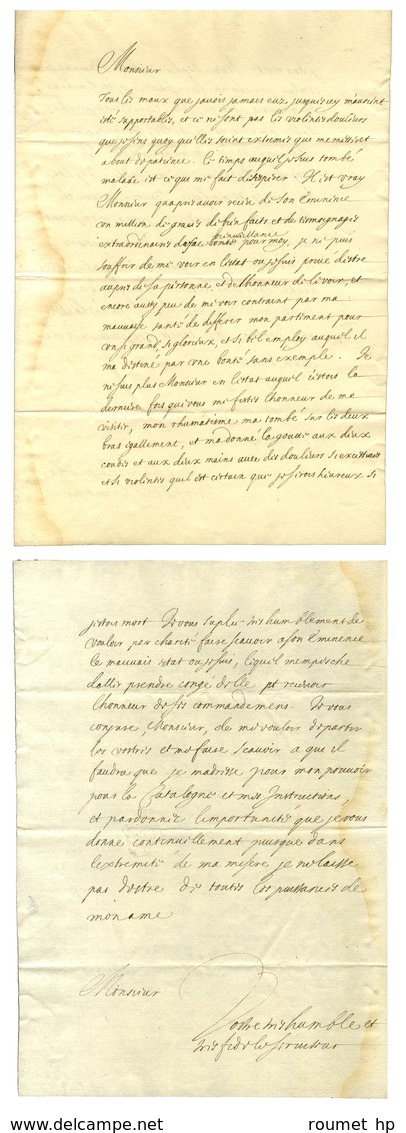 Monsieur
Tous les maux que javois jamais eus jusques icy m'avoient
esté supportables, et ce ne sont pas les violentes douleurs
que je sens quoy quelles soient extremes que me mettent
a bout de patience. Le temps auquel je suis tombé
malade est ce qui me fait desesperer. Il est vray
Monsieur quapres avoir receu de son Eminence
un million de graces de bienfaits et de tesmoignages
extraordinaires de sa bienveillance pour moy, je ne puis
souffrir de me voir en lestat ou je suis privé destre
aupres de sa personne, et de lhonneur de le voir, et
encore aussy peu de me voir contraint par ma
mauvaise santé de differer mon partiment pour
un si grand, si glorieux, et si bel employ auquel il
ma destiné par une bonté sans exemple. Je
ne suis plus Monsieur en lestat auquel jestois la
derniere fois que vous me fistes lhonneur de me
visiter, mon rhumatisme ma tombé sur les deux
bras egallement, et ma donné la goutte aux deux
coudes et aux deux mains avec des douleurs si excessives
et si violentes quil est certain que je serois heureux si
jestois mort Je vous suplie tres humblement de
vouloir par charité faire scavoir a son Eminence
le mauvais estat ou je suis, lequel mempesche
daller prendre congé delle et recevoir
lhonneur de ses commandemens. Je vous
conjure, Monsieur, de me vouloir departir
les vostres et me faire scavoir a qui il
faudra que je madresse pour mon pouvoir
pour la Catalogne et mes Instructions,
et pardonner limportunité que je vous
donne continuellement puisque dans
lextremité de ma misere je ne laisse
pas destre de toutes les puissances de
mon ame
Monsieur
Vostre tres humble et
tres fidele serviteur
www.delcampe.net
roumet hp